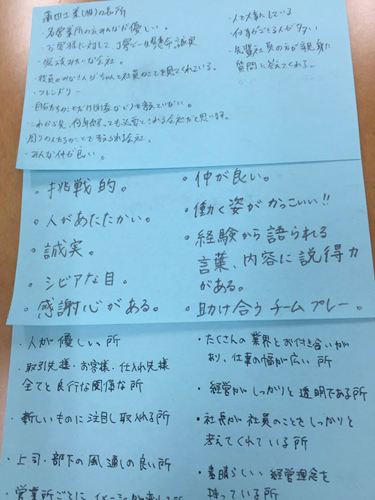 蒲田工業(株)の長所
・各営業所のみなさんが優しい。
・お客様に対して、丁寧に一生懸命、誠実
・家族みたいな会社。
・役員のみな
ちゃんと社員のことを見てくれている。
・フレンドリー
・周りの人たちのことを考えられる会社。
・みんな仲が良い。
・人を大事にしている
・先輩社員の方が親身に
質問に答えてくれる。
・挑戦的。
・人があたたかい。
・誠実。
・シビアな目。
・感謝心がある。
・仲が良い。
・働く姿がかっこいい!!
・経験から語られる
言葉、内容に説得力
がある。
・助け合うチームプレー。
・人が優しい所
・取引先様・お客様、仕入れ先様
全てと良行な関係な所
・新しいものに注目し取入れる所
・上司・部下の風通しの良い所
・営業所ごとに
・たくさんの業界とお付き合いが
あり、仕事の幅が広い所
・経営がしっかりと透明である所
・社長が社員のことをしっかりと
考えてくれている所
・素晴らしい経営理念を
持っている所